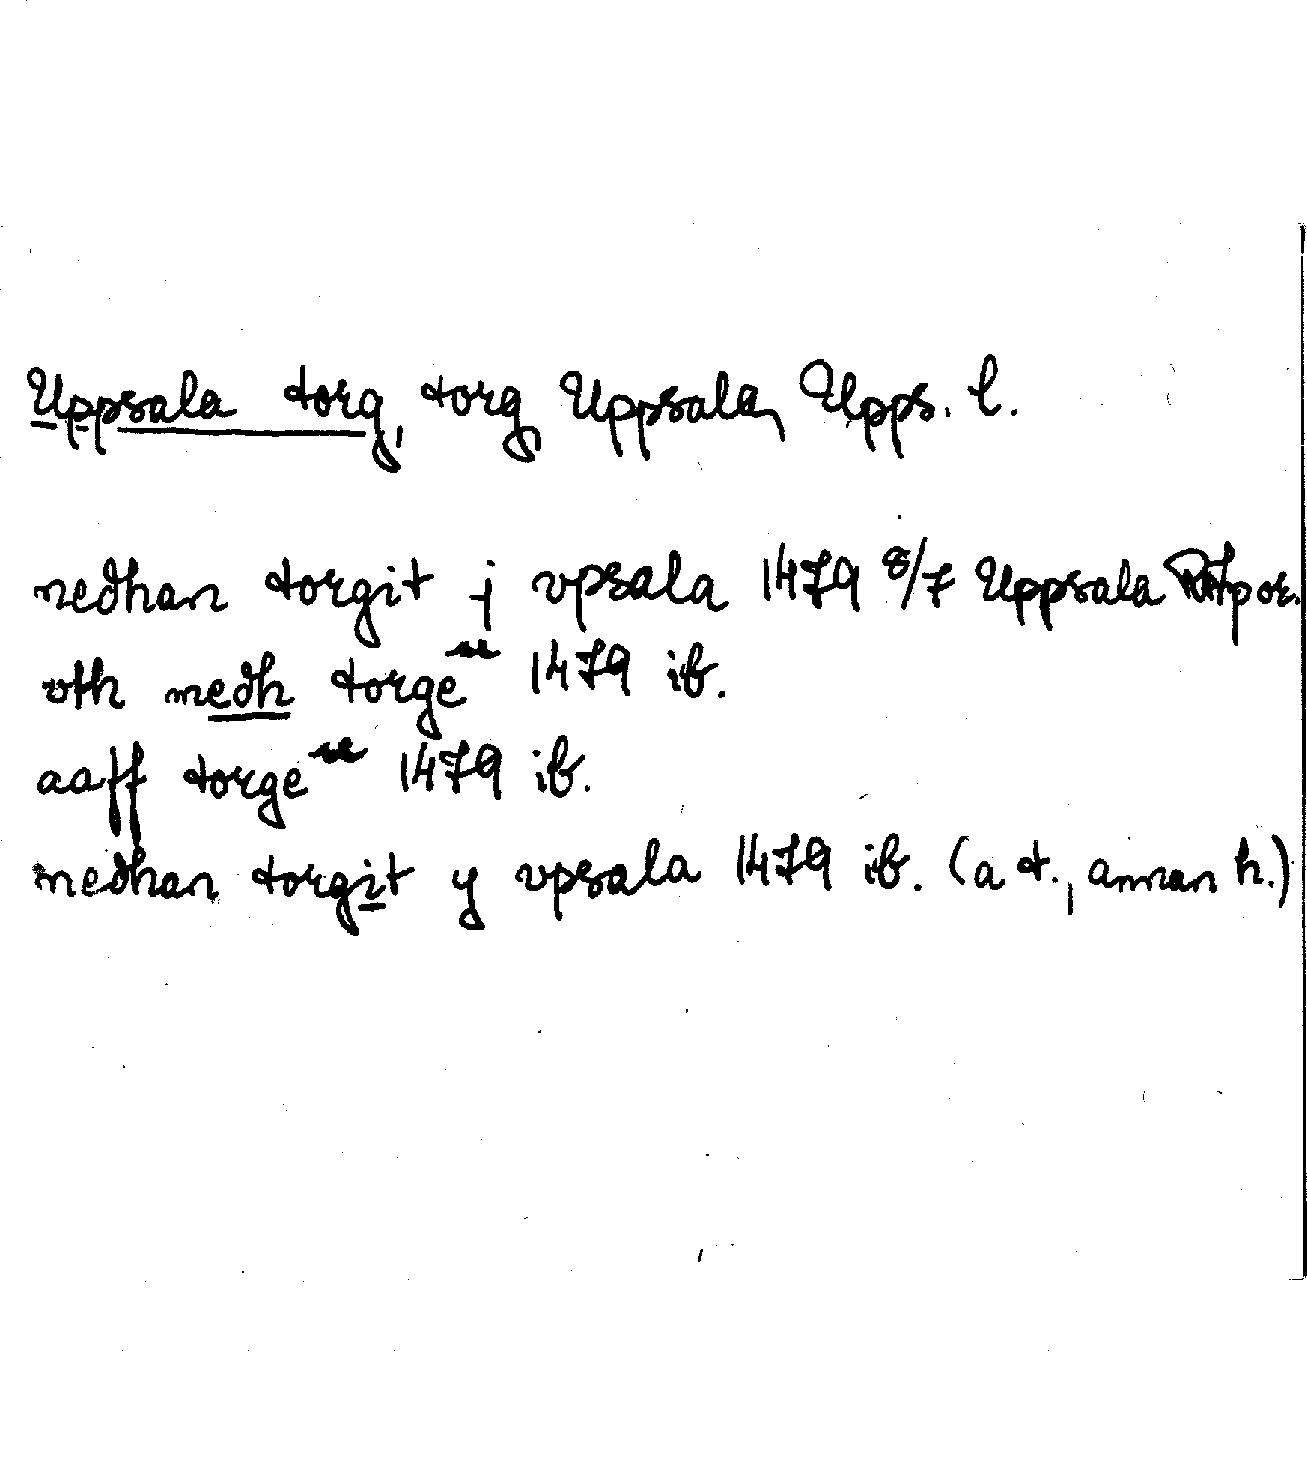 Uppsala torg, torg, Uppsala, Upps. l.
nedhan torgit j vpsala 1479 8/7 Uppsala RA por.
vth medh torge 1479 ib.
aaff torge 1479 ib.
medhan torgit y vpsala 1479 ib. (a t., annan h.)